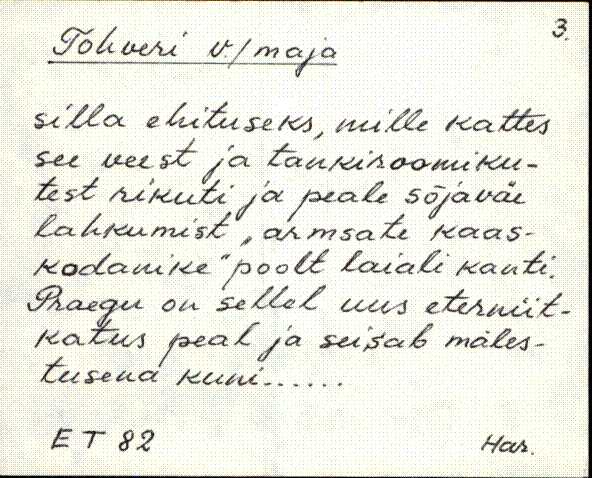 3.
Tohveri v./maja
silla ehituseks, mille kattes
see veest ja tankiroomiku-
test rikuti ja peale sõjaväe
lahkumist „armsate kaas-
kodanike" poolt laiali kanti.
Praegu on sellel uus eterniit-
katus peal ja seisab mäles-
tusena kuni......
E T 82
Har.